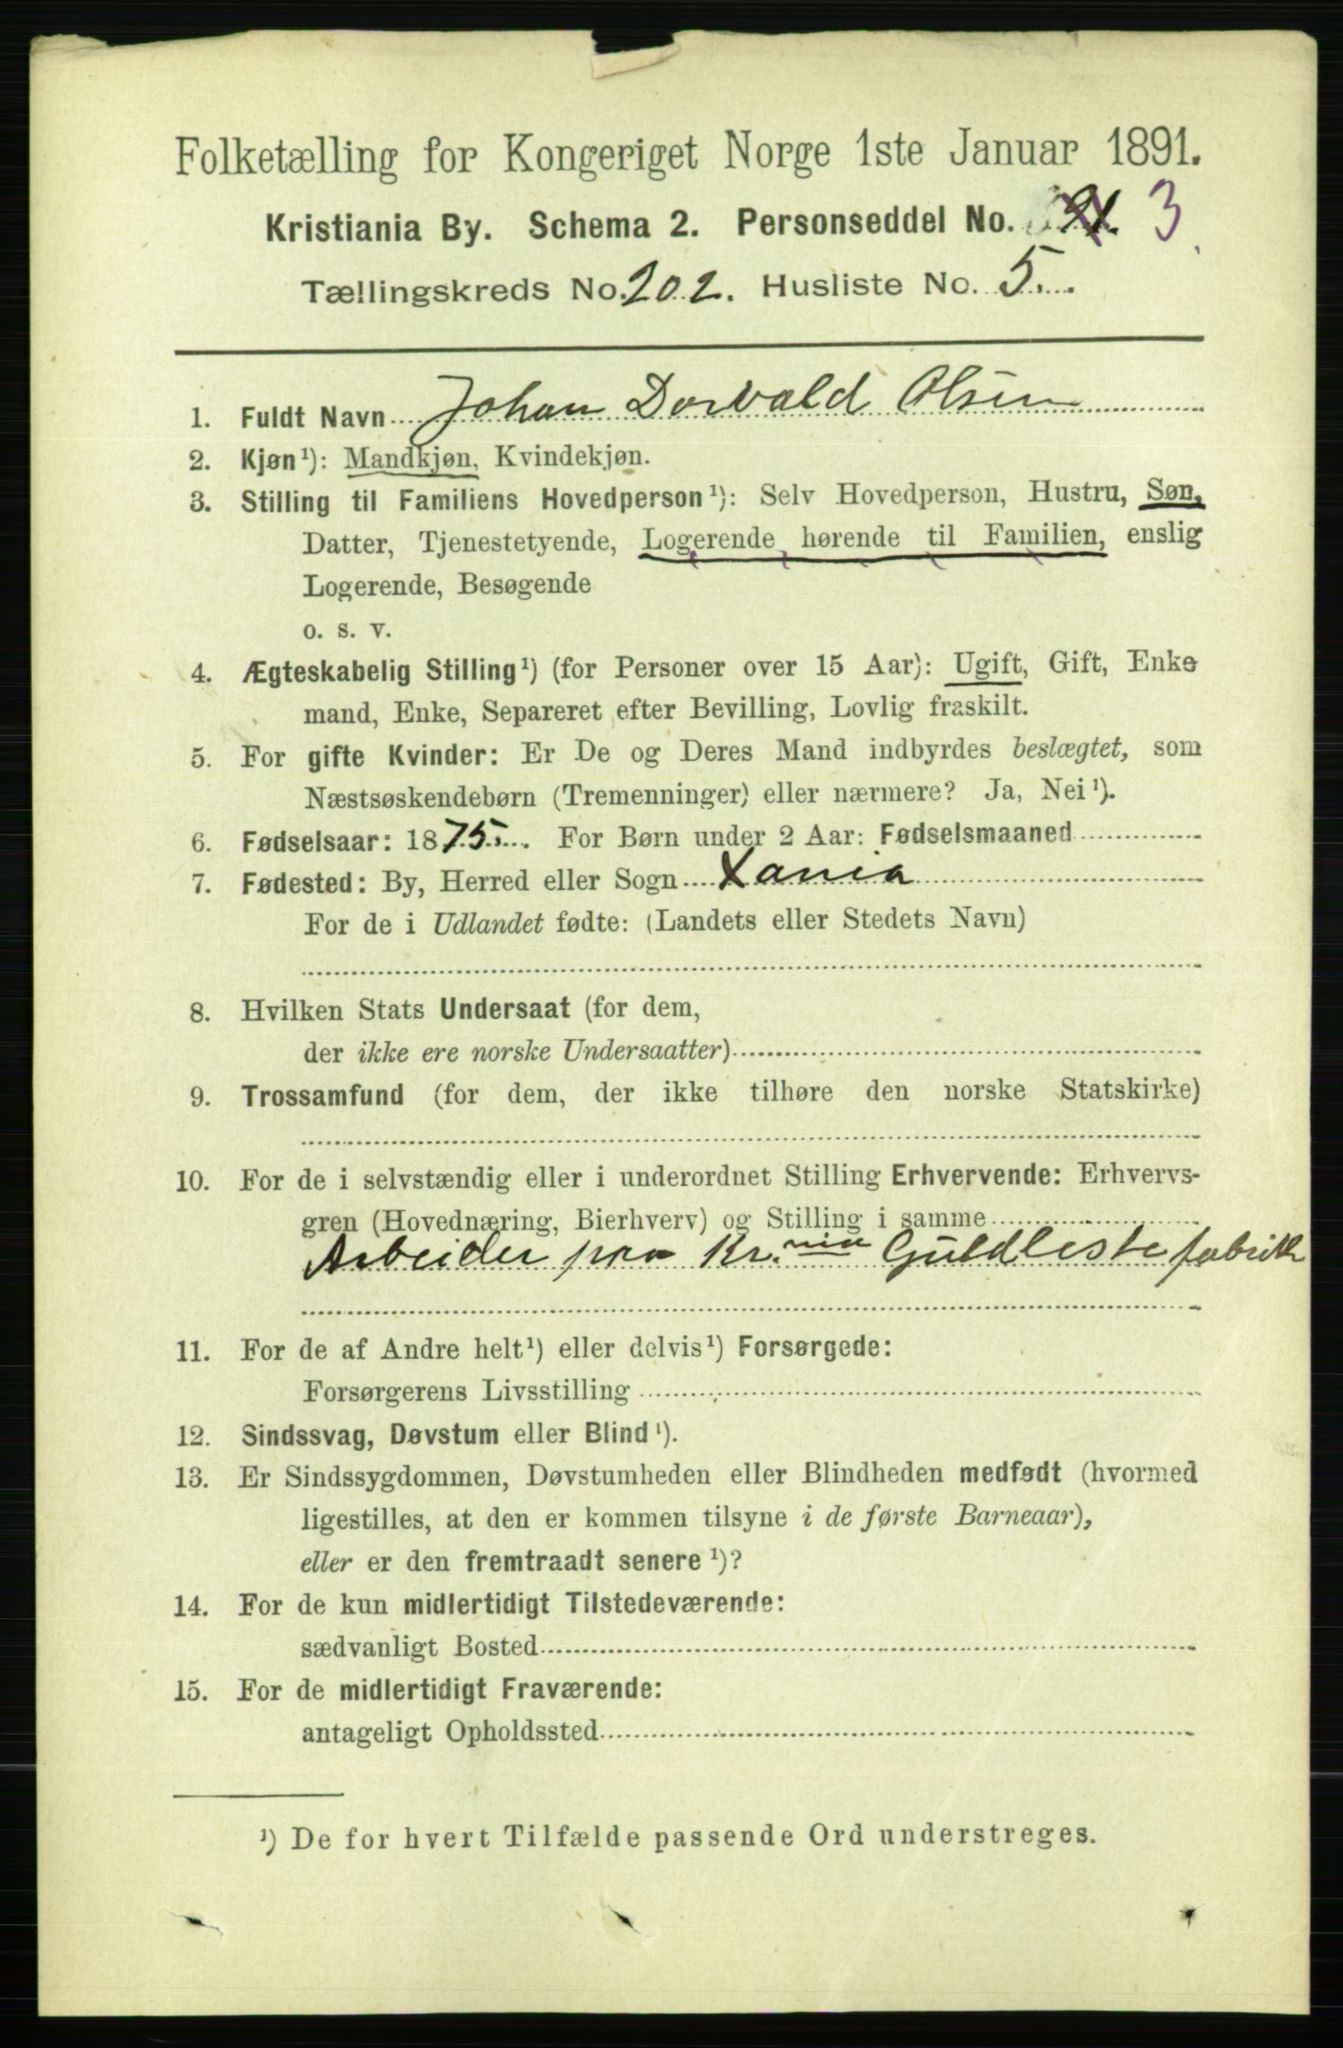 Folketælling for Kongeriget Norge 1ste Januar 1891.
Kristiania By. Schema 2. Personseddel No. 3
Tællingskreds No. 202. Husliste No. 5.
1. Fuldt Navn Johan Dorvald Olsen
2. Kjøn¹): Mandkjøn, Kvindekjøn.
3. Stilling til Familiens Hovedperson¹): Selv Hovedperson, Hustru, Søn,
Datter, Tjenestetyende, Logerende hørende til Familien, enslig
Logerende, Besøgende
o. s. v.
4. Ægteskabelig Stilling¹) (for Personer over 15 Aar): Ugift, Gift, Enke
mand, Enke, Separeret efter Bevilling, Lovlig fraskilt.
5. For gifte Kvinder: Er De og Deres Mand indbyrdes beslægtet, som
Næstsøskendebørn (Tremenninger) eller nærmere? Ja, Nei¹).
6. Fødselsaar: 1875. For Børn under 2 Aar: Fødselsmaaned
7. Fødested: By, Herred eller Sogn Xania
For de i Udlandet fødte: (Landets eller Stedets Navn)
8. Hvilken Stats Undersaat (for dem,
der ikke ere norske Undersaatter)
9. Trossamfund (for dem, der ikke tilhøre den norske Statskirke)
10. For de i selvstændig eller i underordnet Stilling Erhvervende: Erhvervs-
gren (Hovednæring, Bierhverv) og Stilling i samme
Arbeider paa Kr.nia Guldlistefabrik
11. For de af Andre helt¹) eller delvis¹) Forsørgede:
Forsørgerens Livsstilling
12. Sindssvag, Døvstum eller Blind¹).
13. Er Sindssygdommen, Døvstumheden eller Blindheden medfødt (hvormed
ligestilles, at den er kommen tilsyne i de første Barneaar),
eller er den fremtraadt senere¹)?
14. For de kun midlertidigt Tilstedeværende:
sædvanligt Bosted
15. For de midlertidigt Fraværende:
antageligt Opholdssted
¹) De for hvert Tilfælde passende Ord understreges.